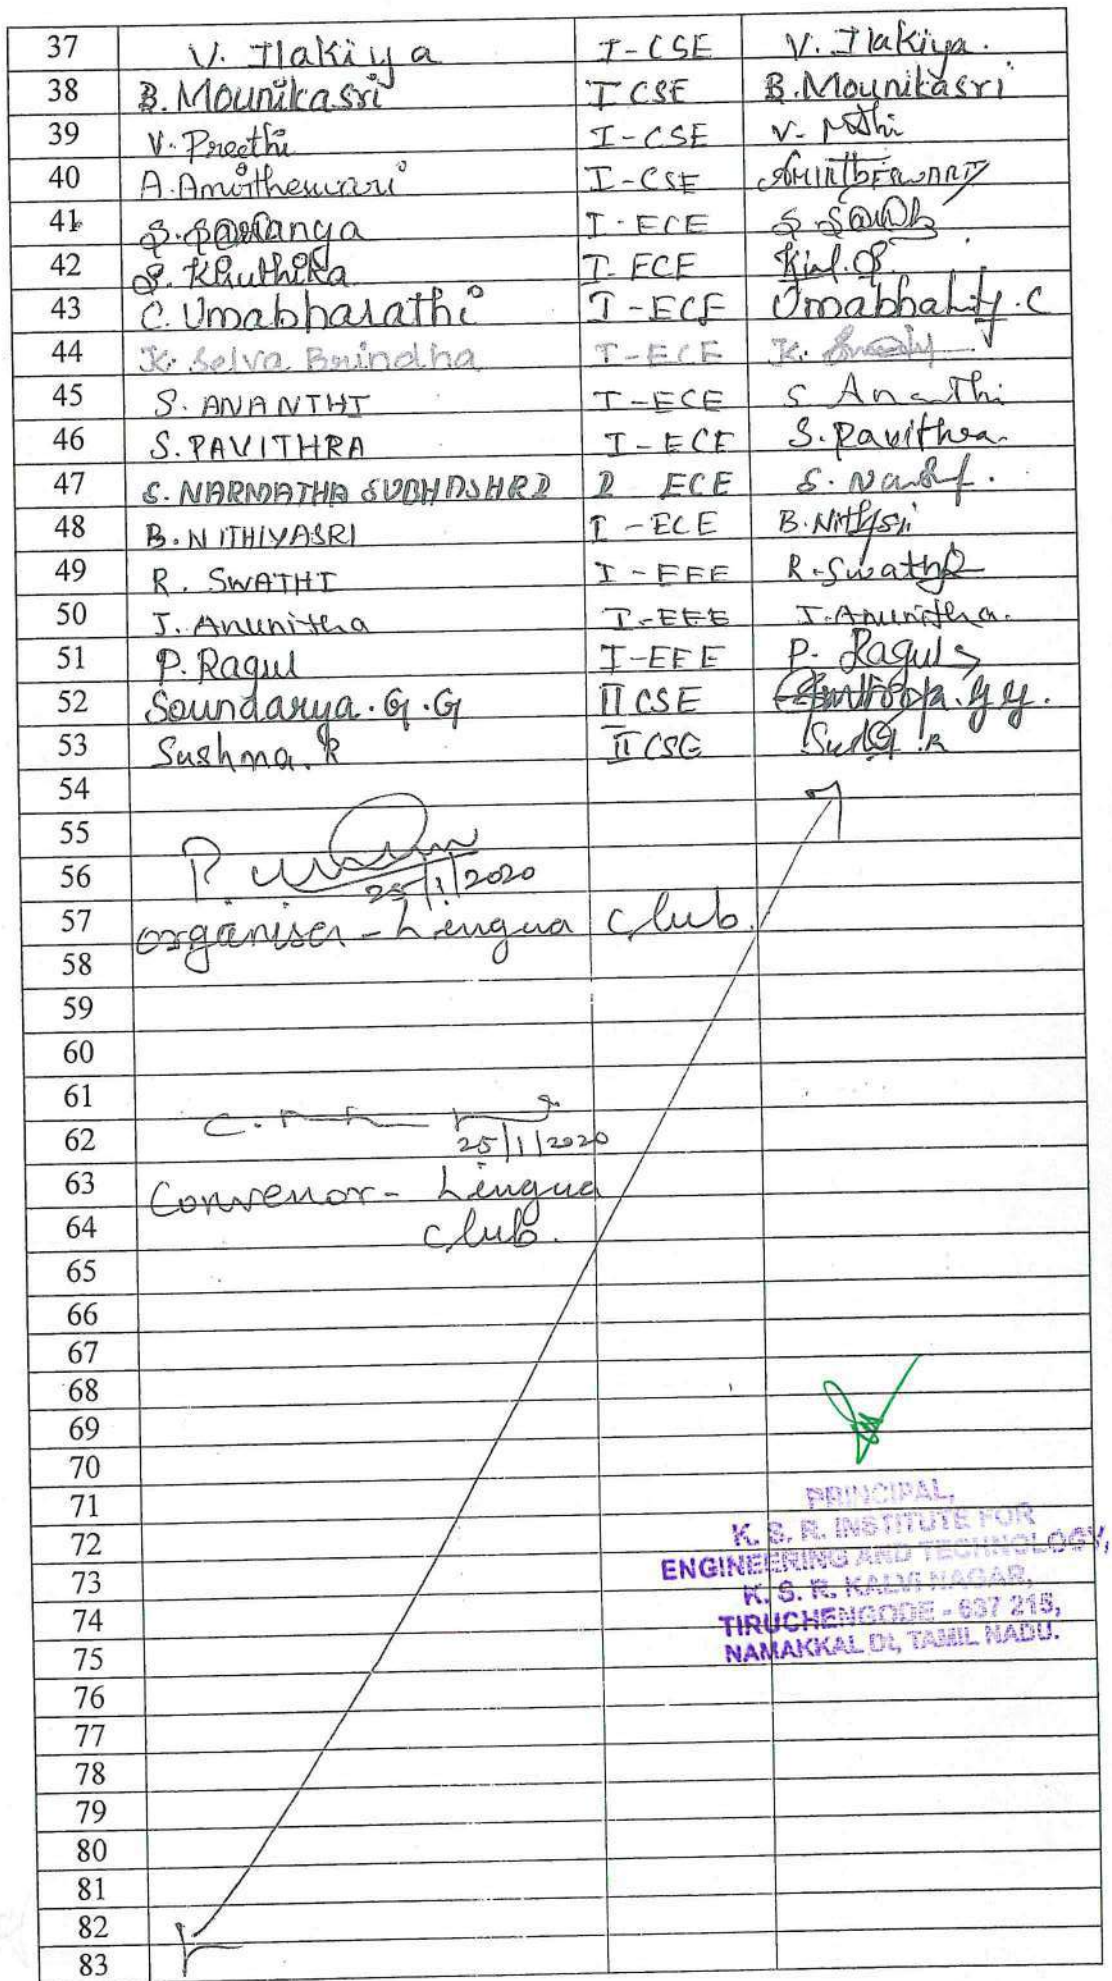 37 V. Ilakiya I-CSE V. Ilakiya.
38 B. Mounikasri I CSE B. Mounikasri
39 V. Preethi I-CSE V.
40 A. Amirtheswari I-CSE AMIRTHESWARI
41 S. I-ECE S.
42 S. Kiruthika I-ECE
43 C. Umabharathi I-ECE C
44 K. Selva Brindha I-ECE K.
45 S. ANANTHI I-ECE S Ananthi
46 S. PAVITHRA I-ECE S. Pavithra
47 S. NARMATHA SUBHASHRI I ECE S.
48 B. NITHIYASRI I-ECE B.
49 R. SWATHI I-EEE R. Swathi
50 J. Anunitha I-EEE J. Anunitha.
51 P. Ragul I-EEE P. Ragul
52 Soundarya. G. G II CSE
53 Sushma. R II CSE
54
55
56 25/1/2020
57 organiser - Lingua club.
58
59
60
61
62 25/1/2020
63 Convenor - Lingua
64 club.
65
66
67
68
69
70
71
72
73
74
75
76
77
78
79
80
81
82
83
PRINCIPAL,
K. S. R. INSTITUTE FOR
ENGINEERING AND TECHNOLOGY,
K. S. R. KALVI NAGAR,
TIRUCHENGODE - 637 215,
NAMAKKAL Dt, TAMIL NADU.